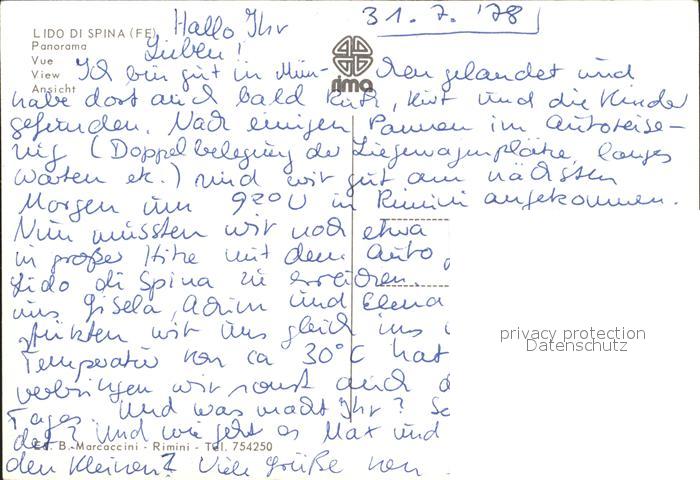 LIDO DI SPINA (FE)
Panorama
Vue
View
Ansicht
rima
31.7.'78
Hallo Ihr
Lieben!
Ich bin gut in Mün- chen gelandet und
habe dort auch bald Ruth, Kurt und die Kinder
gefunden. Nach einigen Pannen im Autoreise-
zug (Doppelbelegung der Liegewagenplätze, langes
Warten etc.) sind wir gut am nächsten
Morgen um 920 U in Rimini angekommen.
Nun mussten wir noch etwa
in großer Hitze mit dem Auto
Lido di Spina zu erreichen.
uns Gisela, Achim und Elena
stürzten wir uns gleich ins
Temperatur von ca 30°C hat
verbringen wir sonst auch d
Tages. Und was macht Ihr? Se
det? Und wie geht es Max und
den Kleinen? Viele Grüße von
privacy protection
Datenschutz
Ed. B. Marcaccini - Rimini - Tel. 754250